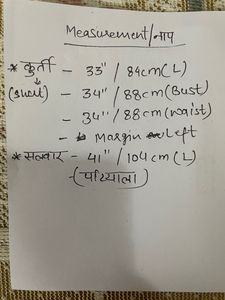 Measurement/नाप
* कुर्ती - 33"/84cm(L)
(short) - 34"/88cm(Bust)
- 34"/88cm(waist)
- Margin Left
* सलवार - 41"/104cm(L)
-(पटियाला)